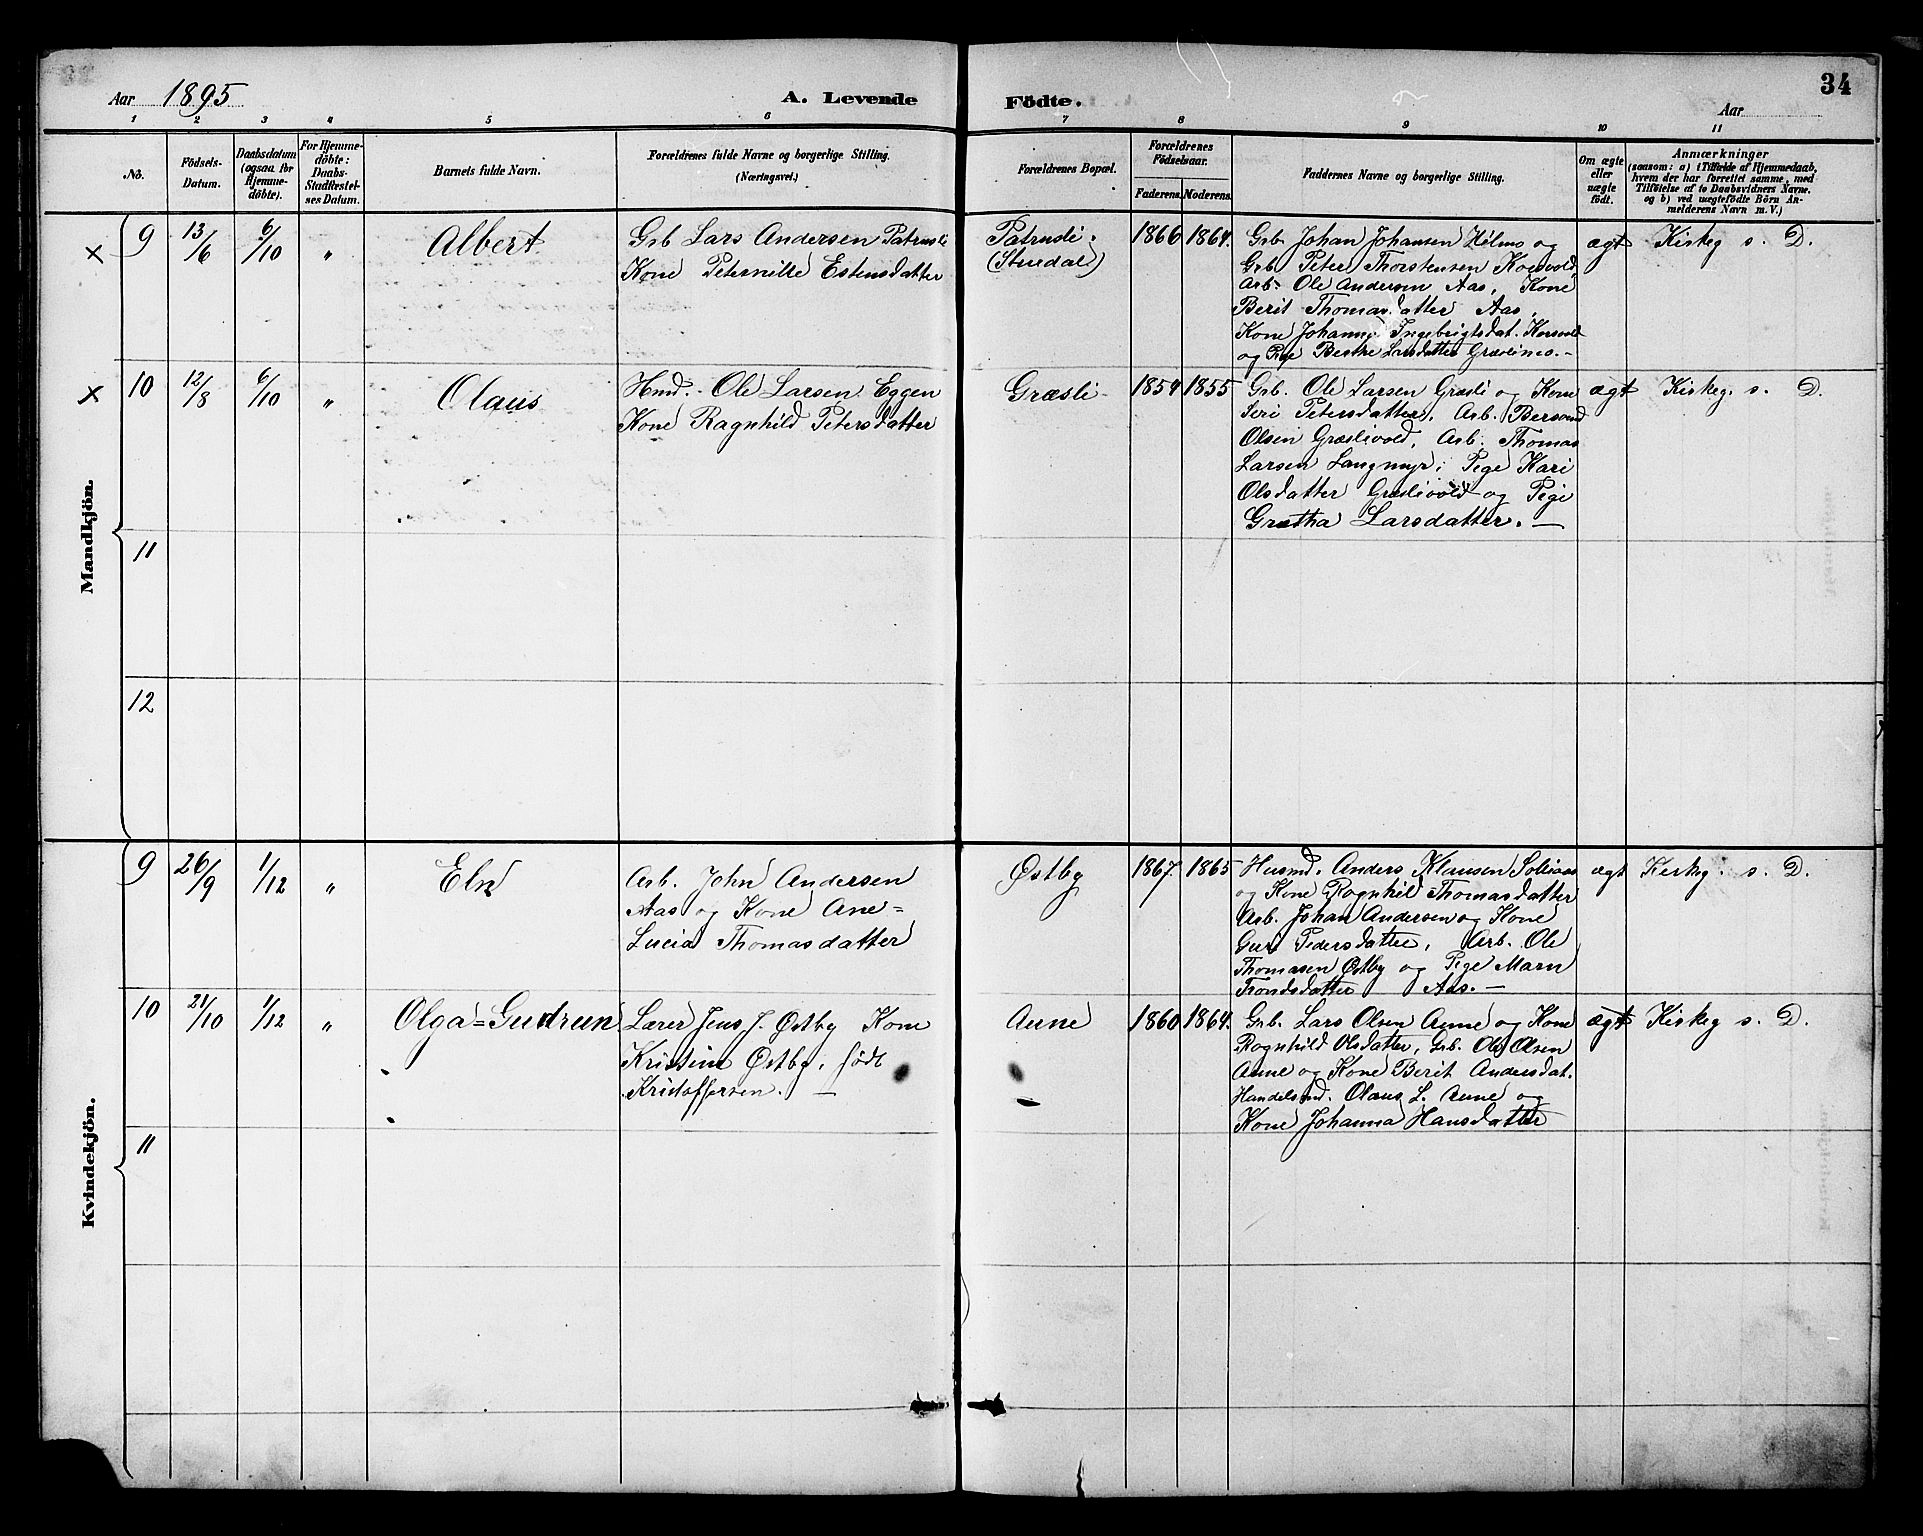 34
Aar 1895
A. Levende
Födte.
Aar
1 2 3 4 5 6 7 8 9 10 11
No.
Födsels-
Datum.
Daabsdatum
(ogsaa for
Hjemme-
döbte).
For Hjemme-
döbte:
Daabs-
Stadfæstel-
ses Datum.
Barnets fulde Navn.
Forældrenes fulde Navne og borgerlige Stilling.
(Næringsvei.)
Forældrenes Bopæl.
Forældrenes
Födselsaar.
Faderens. Moderens.
Faddernes Navne og borgerlige Stilling.
Om ægte
eller
uægte
födt.
Anmærkninger
(saasom: a) i Tilfælde af Hjemmedaab,
hvem der har forrettet samme, med
Tilföielse af to Daabsvidners Navne.
og b) ved uægtefödte Börn An-
melderens Navn m. V.)
Mandkjön.
× 9 13/6 6/10 " Albert
Grb Lars Andersen Patrusli
Kone Peternille Estensdatter
Patrusli
(Stuedal)
1866 1864.
Grb. Johan Johansen Hilmo og
Grb. Peter Thorstensen Korsvold
Arb. Ole Andersen Aas, Kone
Berit Thomasdatter Aas,
Kone Johanna Ingebrigtsdat. Korsvold
og Pige Berthe Larsdatter Græslimo.-
ægt Kirkeg s. D.
× 10 12/8 6/10 " Olaus
Hmd. Ole Larsen Eggen
Kone Ragnhild Petersdatter
Græsli
1854 1855
Grb. Ole Larsen Græsli og Kone
Seri Petersdatter, Arb. Bersvend
Olsen Græslivold, Arb. Thomas
Larsen Langmyr, Pige Kari
Olsdatter Græslivold og Pige
Gretha Larsdatter. —
ægt Kirkeg. s. D.
11
12
Kvindekjön.
9 26/9 1/12 " Eln
Arb. John Andersen
Aas og Kone Ane=
Lucia Thomasdatter
Østby
1867. 1865
Husmd. Anders Klausen
og Kone Ragnhild Thomasdatter
Arb. Johan Andersen og Kone
Guri Pedersdatter, Arb. Ole
Thomasen Østby og Pige Marn
Trondsdatter Aas. —
ægt Kirkeg. s. D.
10 21/10 1/12 " Olga=Gudrun
Lærer Jens J. Østby Kone
Kristine Østby, født
Kristoffersen. —
Aune
1860 1864.
Grb. Lars Olsen Aune og Kone
Ragnhild Olsdatter, Grb. Ole Olsen
Aune og Kone Berit Andersdat.
Handelsmd. Olaus L. Aune og
Kone Johanna Hansdatter
ægt Kirkeg s. D.
11